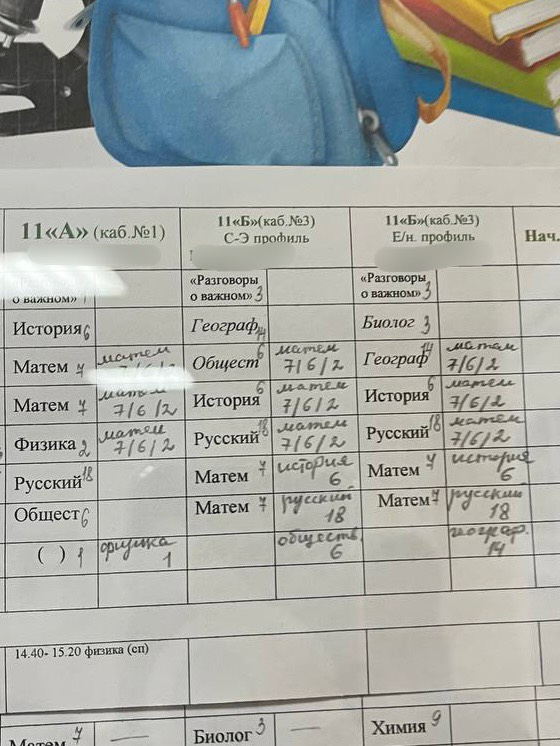 11«А» (каб.№1) 11«Б»(каб.№3) 11«Б»(каб.№3)
С-Э профиль Е/н. профиль Нач.
«Разговоры «Разговоры
о важном» о важном» 3 о важном» 3
История 6 Географ 14 Биолог 3
Матем 7 матем Общест 6 матем 7/6/2 Географ 14 матем 7/6/2
Матем 7 матем 7/6/2 История 6 матем 7/6/2 История 6 матем 7/6/2
Физика 2 матем 7/6/2 Русский 18 матем 7/6/2 Русский 18 матем 7/6/2
Русский 18 Матем 7 история 6 Матем 7 история 6
Общест 6 Матем 7 русский 18 Матем 7 русский 18
( ) 1 физика 1 обществ. 6 географ. 14
14.40- 15.20 физика (сп)
Матем 7 — Биолог 3 — Химия 9